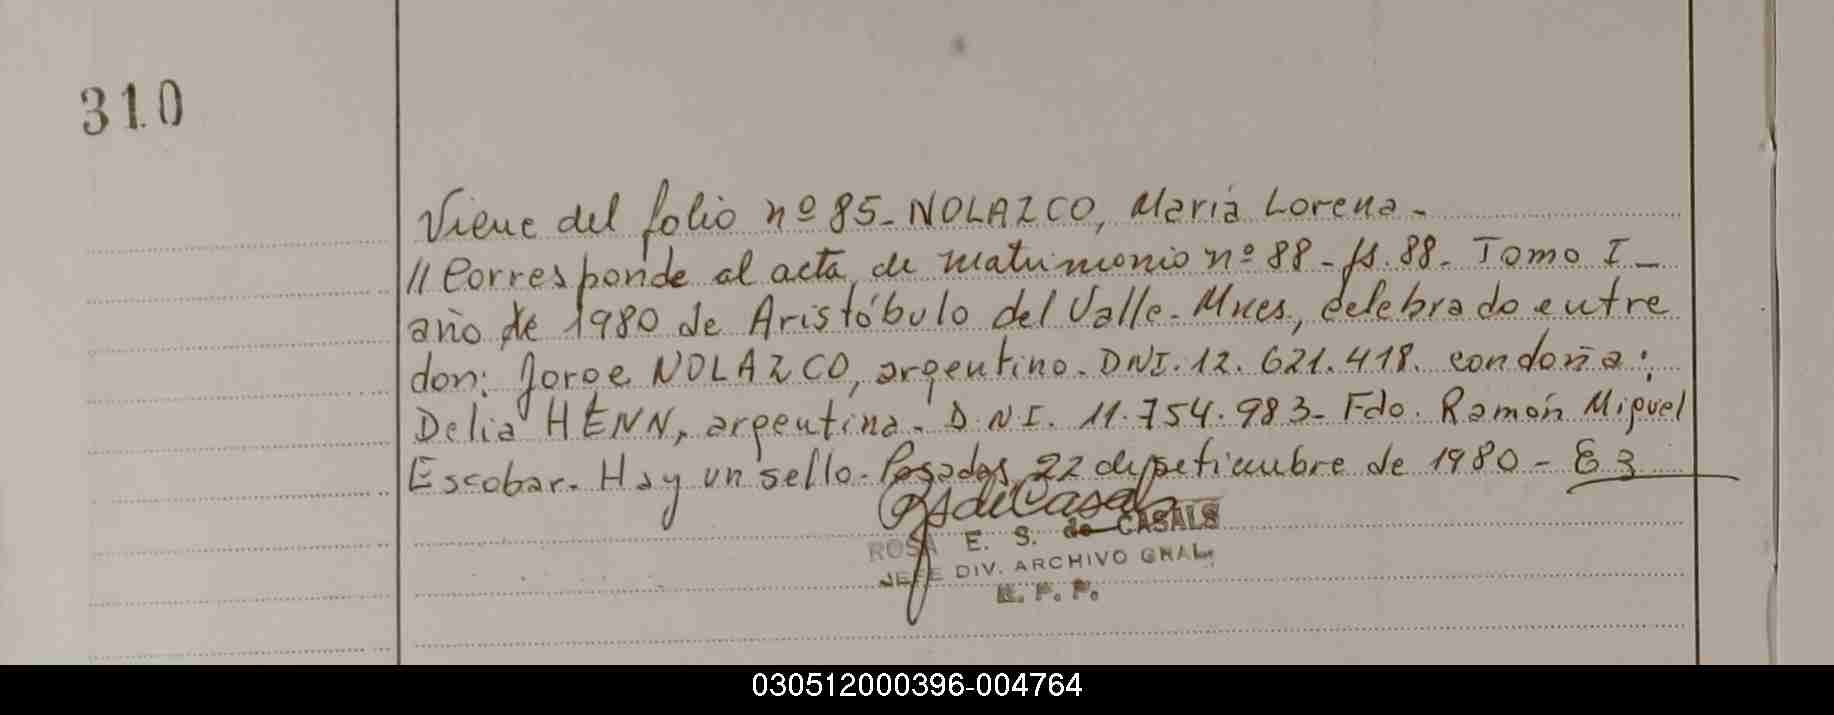 310
Viene del folio nº 85- NOLAZCO, María Lorena-
// Corresponde al acta de matrimonio nº 88- fs. 88- Tomo I-
año de 1980 de Aristóbulo del Valle- Mnes, celebrado entre
don: Jorge NOLAZCO, argentino. DNI. 12.621.418. con doña:
Delia HENN, argentina. D.N.I. 11.754.983- Fdo. Ramón Miguel
Escobar. Hay un sello- Posadas, 22 de setiembre de 1980-
ROSA E. S. de CASALS
JEFE DIV. ARCHIVO GRAL.
R. P. P.
030512000396-004764